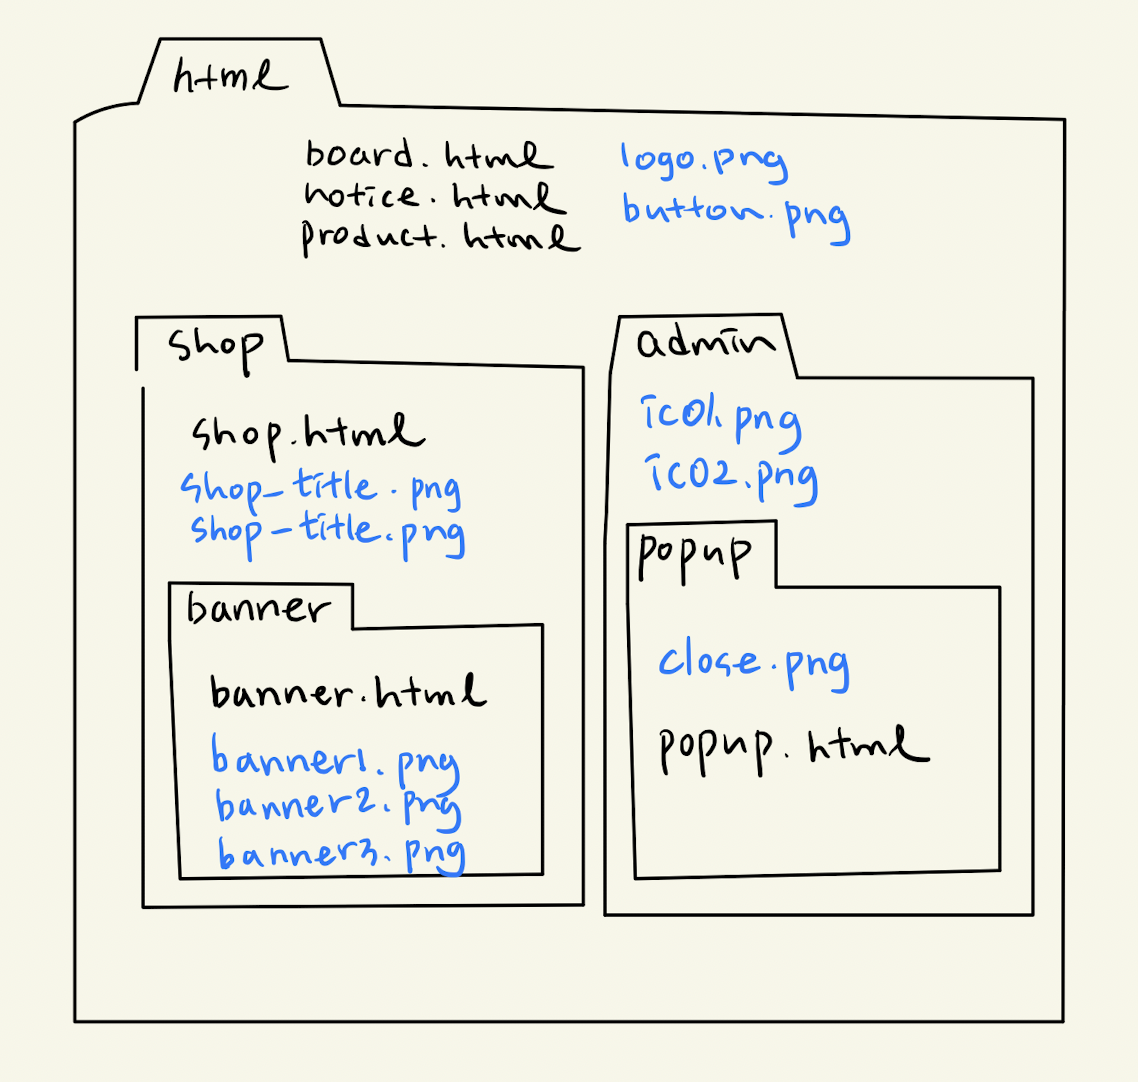 html
board.html
notice.html
product.html
logo.png
button.png
shop
shop.html
shop-title.png
shop-title.png
banner
banner.html
banner1.png
banner2.png
banner3.png
admin
ico1.png
ico2.png
popup
close.png
popup.html